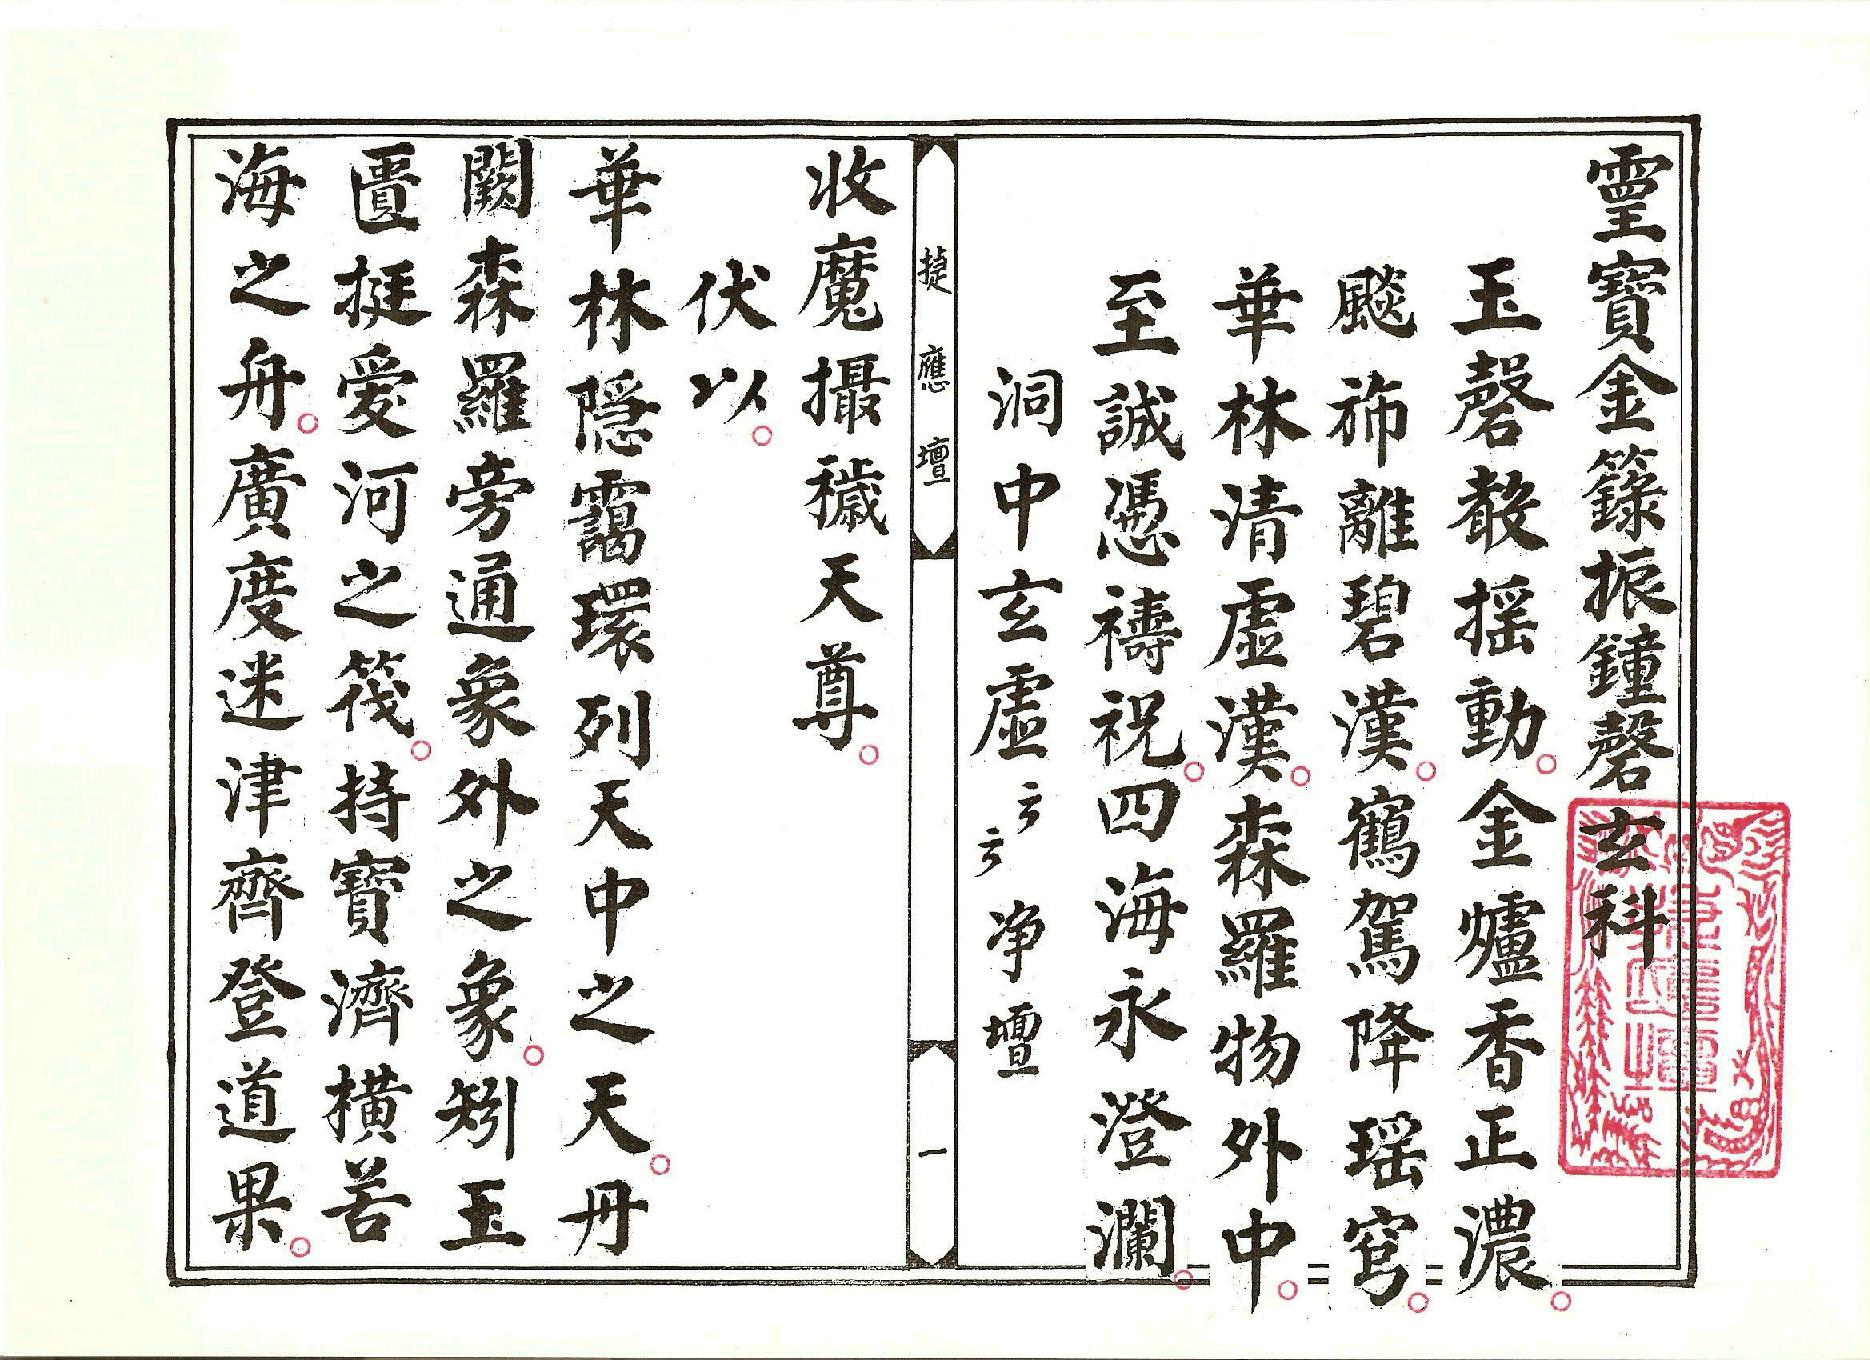 靈寶金籙振鐘磬玄科
玉磬搖動。金爐香正濃。
飈斾離碧漢。鶴駕降瑶穹。
華林清虛漢。森羅物外中。
至誠憑禱祝。四海永澄瀾。
洞中玄虛云云净壇
捷應壇 一
收魔攝穢天尊。
伏以。
華林隱靄環列天中之天。丹
闕森羅旁通象外之象。矧玉
匱挺愛河之筏。持寶濟橫苦
海之舟。廣度迷津齊登道果。